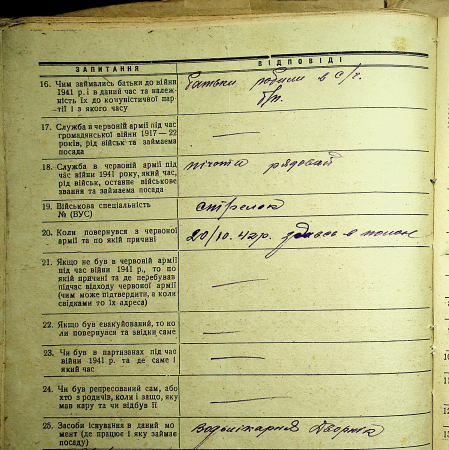 ЗАПИТАННЯ
ВІДПОВІДІ
16. Чим займались батьки до війни
1941 р. і в даний час та належ-
ність їх до комуністичної пар-
тії і з якого часу
батьки робили в с/г.
б/п.
17. Служба в червоній армії під час
громадянської війни 1917 — 22
років, рід військ та займаєма
посада
18. Служба в червоній армії під
час війни 1941 року, який час,
рід військ, останнє військове
звання та займаєма посада
піхота рядовой
19. Військова спеціальність
№ (ВУС)
стрелок
20. Коли повернувся з червоної
армії та по якій причині
20/10.42р. здавсь в полон
21. Якщо не був в червоній армії
під час війни 1941 р., то по
якій причині та де перебував
підчас відходу червоної армії
(чим може підтвердити, а коли
свідками то їх адреса)
22. Якщо був евакуйований, то ко
ли повернувся та звідки саме
23. Чи був в партизанах під час
війни 1941 р. та де саме і
який час
24. Чи був репресований сам, або
хто з родичів, коли і защо, яку
мав кару та чи відбув її
25. Засоби існування в даний мо
мент (де працює і яку займає
посаду)
Водолікарня